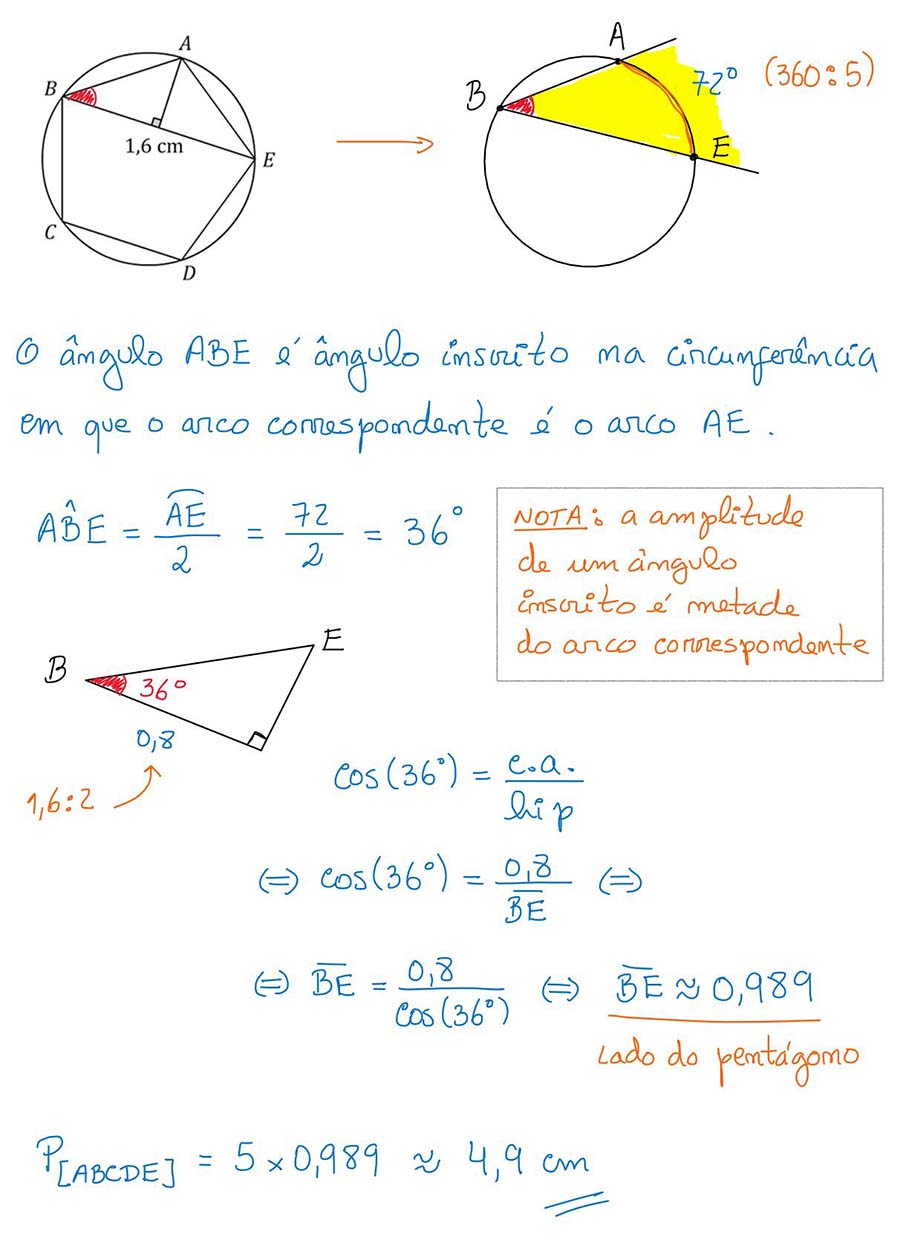 A
B
1,6 cm
E
C
D
A
B
72° (360:5)
E
O ângulo ABE é ângulo inscrito na circunferência
em que o arco correspondente é o arco AE.
AB̂E = A͡E/2 = 72/2 = 36°
NOTA: a amplitude
de um ângulo
inscrito é metade
do arco correspondente
B
E
36°
0,8
1,6:2
cos(36°) = c.a./hip
⇔ cos(36°) = 0,8/B̅E̅ ⇔
⇔ B̅E̅ = 0,8/cos(36°) ⇔ B̅E̅ ≈ 0,989
Lado do pentágono
P[ABCDE] = 5 × 0,989 ≈ 4,9 cm